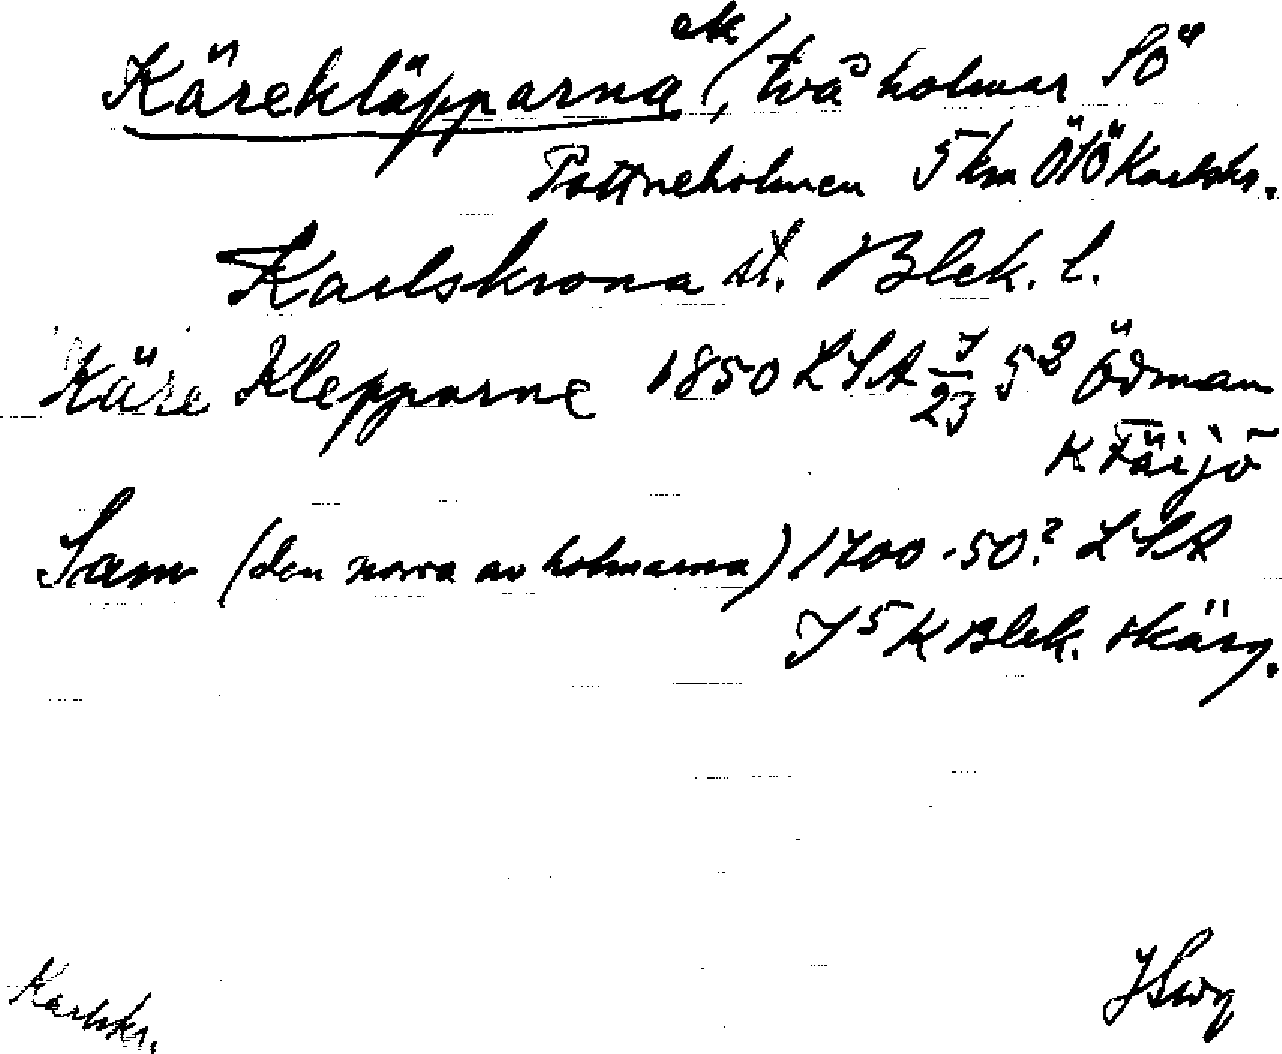 Kärekläpparna ek/, två holmar SÖ
Pottneholmen 5 km ÖSÖ Karlskr.
Karlskrona st. Blek. l.
Käre Klepparne 1850 LSA J/23 5² Ödman
K Färjö
Sam (den norra av holmarna) 1700-50? LSA
J 5 K Blek. skärg.
Karlskr.